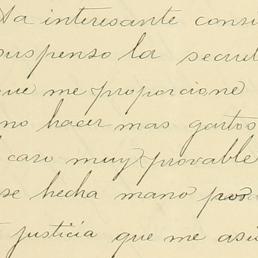 ta interesante consi
suspenso la secret
que me proporcione
no hacer mas gastos
caso muy provable
se hecha mano
justicia que me asis